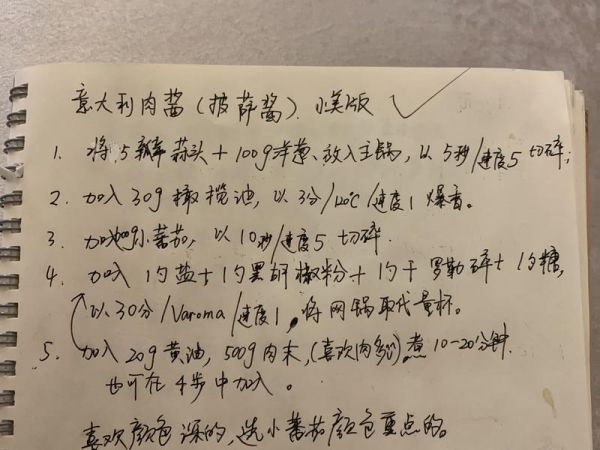 意大利肉酱（披萨酱）. 小美版
1. 将5瓣蒜头＋100g洋葱、放入主锅，以5秒/速度5切碎；
2. 加入30g橄榄油，以3分/120℃/速度1爆香。
3. 加入小蕃茄，以10秒/速度5切碎.
4. 加入1勺盐＋1勺黑胡椒粉＋1勺干罗勒碎＋1勺糖，
以30分/Varoma/速度1，将网锅取代量杯。
5. 加入20g黄油，500g肉末，（喜欢肉多）.煮10-20分钟.
也可在4步中加入。
喜欢颜色深的，选小蕃茄颜色重点的。